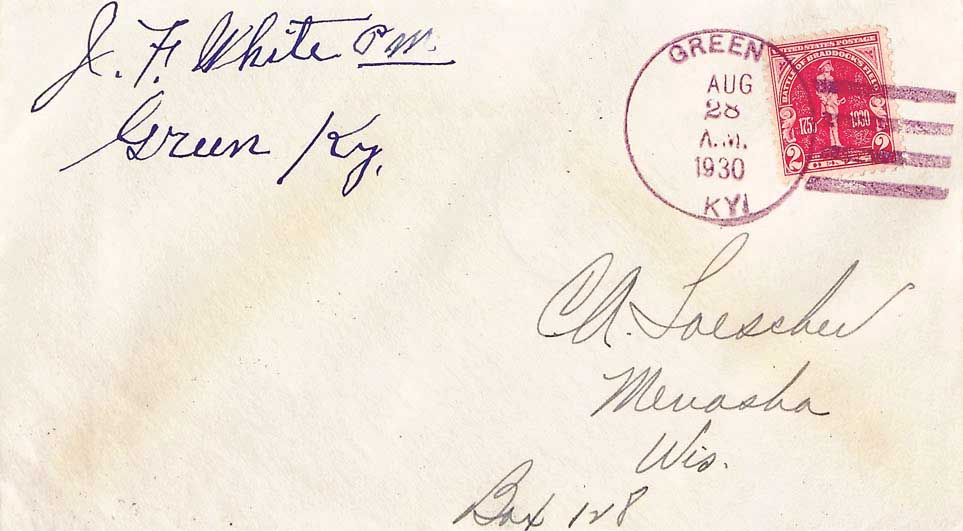 J. F. White P.M.
Green Ky.
GREEN
AUG
28
A.M.
1930
KY.
UNITED STATES POSTAGE
BATTLE OF BRADDOCK'S FIELD
1755 1930
2 2
C.A. Loescher
Menasha
Wis.
Box 128